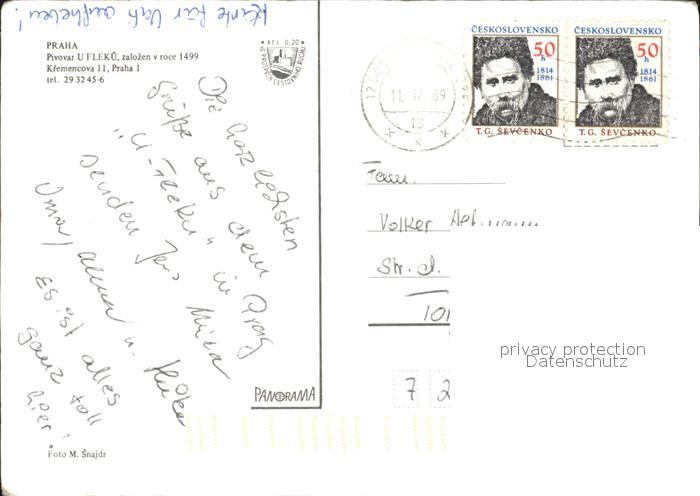 Karte für Vati aufheben!
PRAHA
Pivovar U FLEKŮ, založen v roce 1499
Křemencova 11, Praha 1
tel. 29 32 45-6
Kčs 0,20
VE PROSPĚCH CESTOVNÍHO RUCHU
Die herzlichsten
Grüße aus dem
"U-Fleku" in Prag
senden Jens
Oma,
u. Heike
Es ist alles
ganz toll
hier!
PANORAMA
Foto M. Šnajdr
ČESKOSLOVENSKO
50 h
1814
1861
T. G. ŠEVČENKO
ČESKOSLOVENSKO
50 h
1814
1861
T. G. ŠEVČENKO
89
Fam.
Volker
Str. d.
101
7 2
privacy protection
Datenschutz